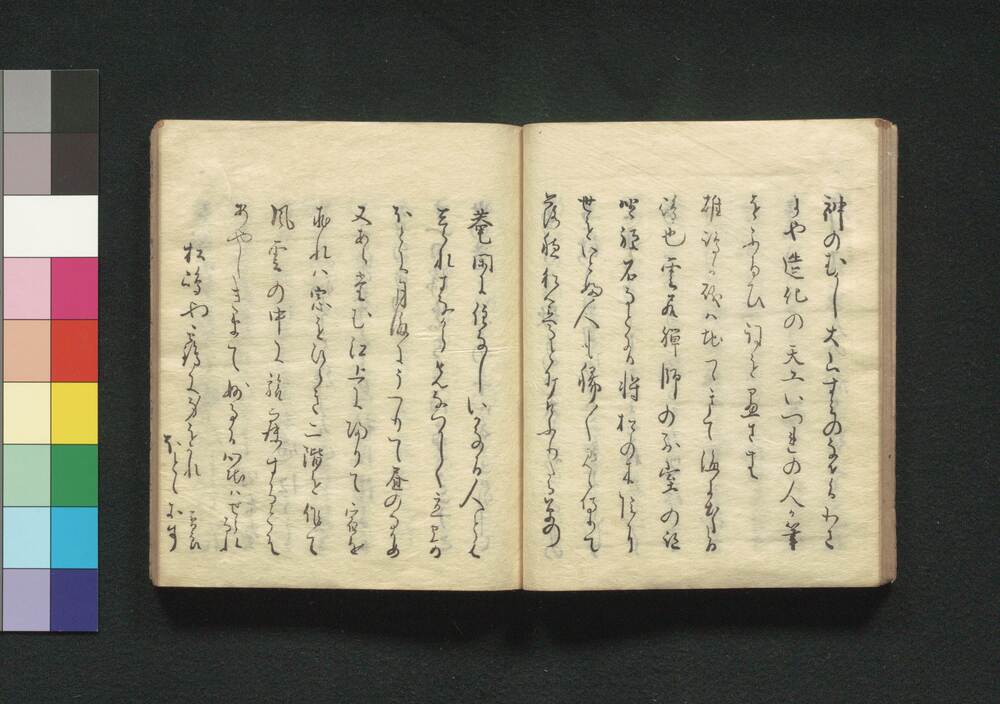 神のむかし大山すみのなせるわさ
にや造化の天工いつれの人か筆
をふるひ詞を尽さむ
雄嶋か磯ハ地つゝきて海に出たる
嶋也雲居禅師の別室の跡
坐禅石なと有将松の木陰に
世をいとふ人も稀〱見え侍りて
落穂松笠なと打けふりたる草の
菴閑に住なしいかなる人とハ
しられすなからまつなつかしく立寄
ほとに月海にうつりて昼のなかめ
又あらたむ江上に帰りて宿を
求れハ窓をひらき二階を作て
風雲の中に旅寐するこそ
あやしきまて妙なる心地ハせらるれ
松嶋や鶴に身をかれ
ほとゝきす　曽良